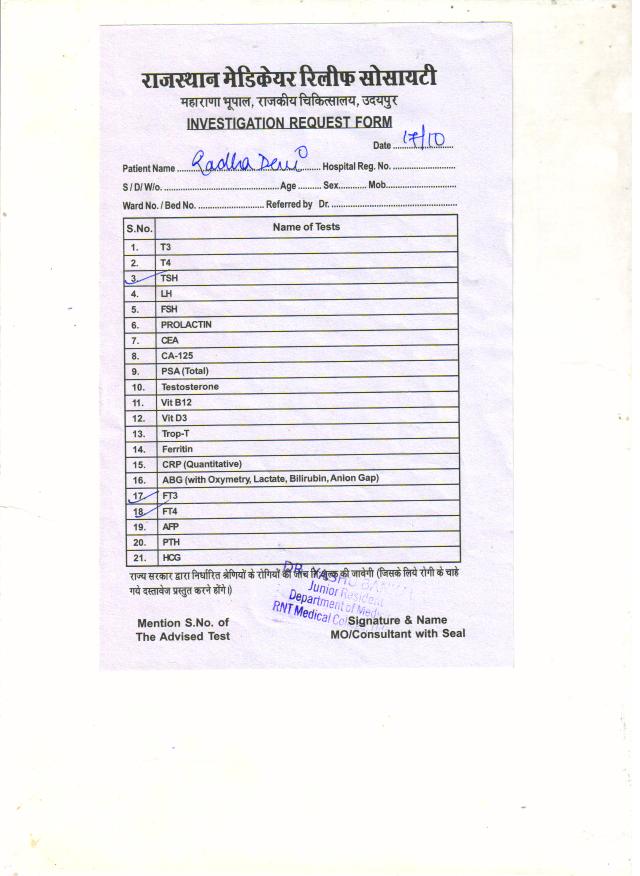 राजस्थान मेडिकेयर रिलीफ सोसायटी
महाराणा भूपाल, राजकीय चिकित्सालय, उदयपुर
INVESTIGATION REQUEST FORM
Date 17/10
Patient Name Radha Devi Hospital Reg. No.
S / D/ W/o. Age Sex Mob.
Ward No. / Bed No. Referred by Dr.
S.No. Name of Tests
1. T3
2. T4
3. TSH
4. LH
5. FSH
6. PROLACTIN
7. CEA
8. CA-125
9. PSA (Total)
10. Testosterone
11. Vit B12
12. Vit D3
13. Trop-T
14. Ferritin
15. CRP (Quantitative)
16. ABG (with Oxymetry, Lactate, Bilirubin, Anion Gap)
17. FT3
18. FT4
19. AFP
20. PTH
21. HCG
राज्य सरकार द्वारा निर्धारित श्रेणियों के रोगियों की जाँच निःशुल्क की जावेगी (जिसके लिये रोगी के चाहे
गये दस्तावेज प्रस्तुत करने होंगे।)
DR.
Junior Resident
Department of
RNT Medical
Mention S.No. of
The Advised Test
Signature & Name
MO/Consultant with Seal